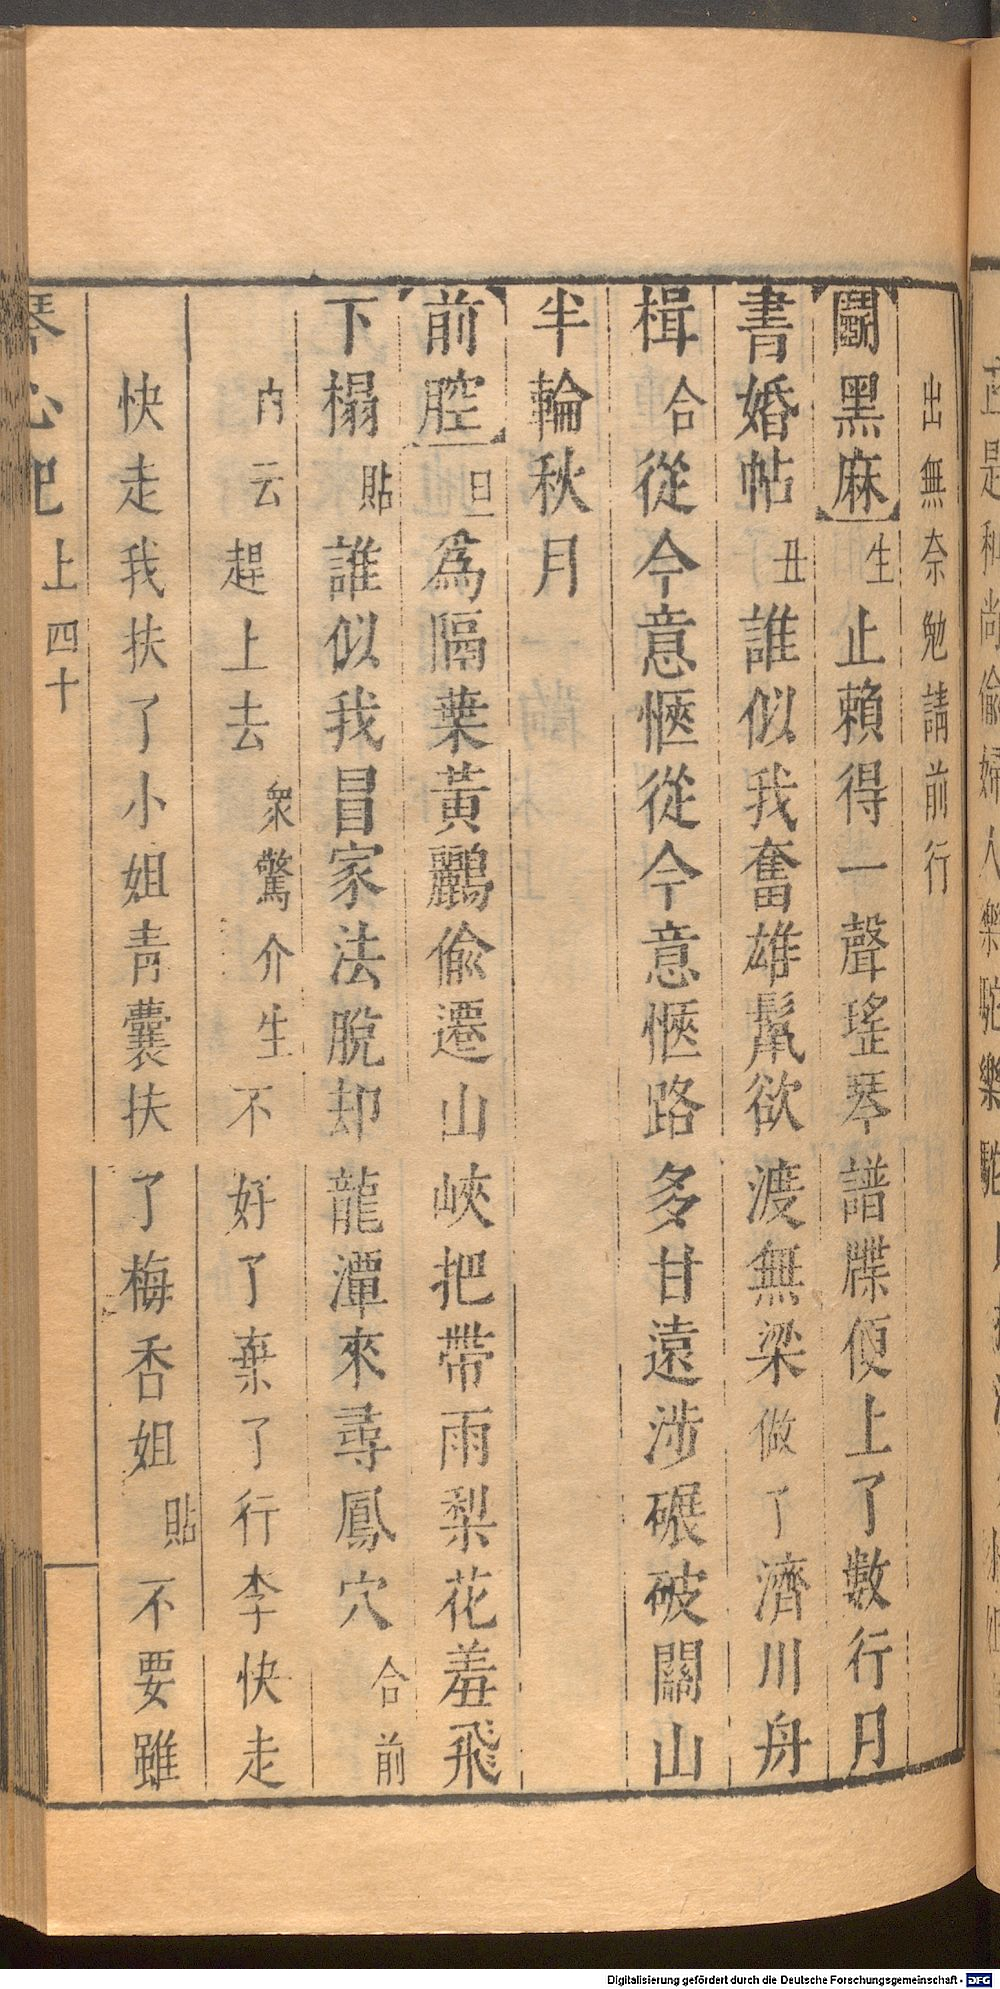 出無奈勉請前行
鬭黑麻生止賴得一聲瑤琴譜牒便上了數行月
書婚帖丑誰似我奮雄髯欲渡無梁做了濟川舟
楫合從今意愜從今意愜路多甘遠涉碾破關山
半輪秋月
前腔旦爲隔葉黃鸝偸遷山峽把帶雨梨花羞飛
下榻貼誰似我冒家法脫却龍潭來尋鳳穴合前
内云趕上去衆驚介生不好了棄了行李快走
快走我扶了小姐靑囊扶了梅香姐貼不要雖
琴心記
上四十
正是和尚偷婦人樂駝樂駝
Digitalisierung gefördert durch die Deutsche Forschungsgemeinschaft - DFG